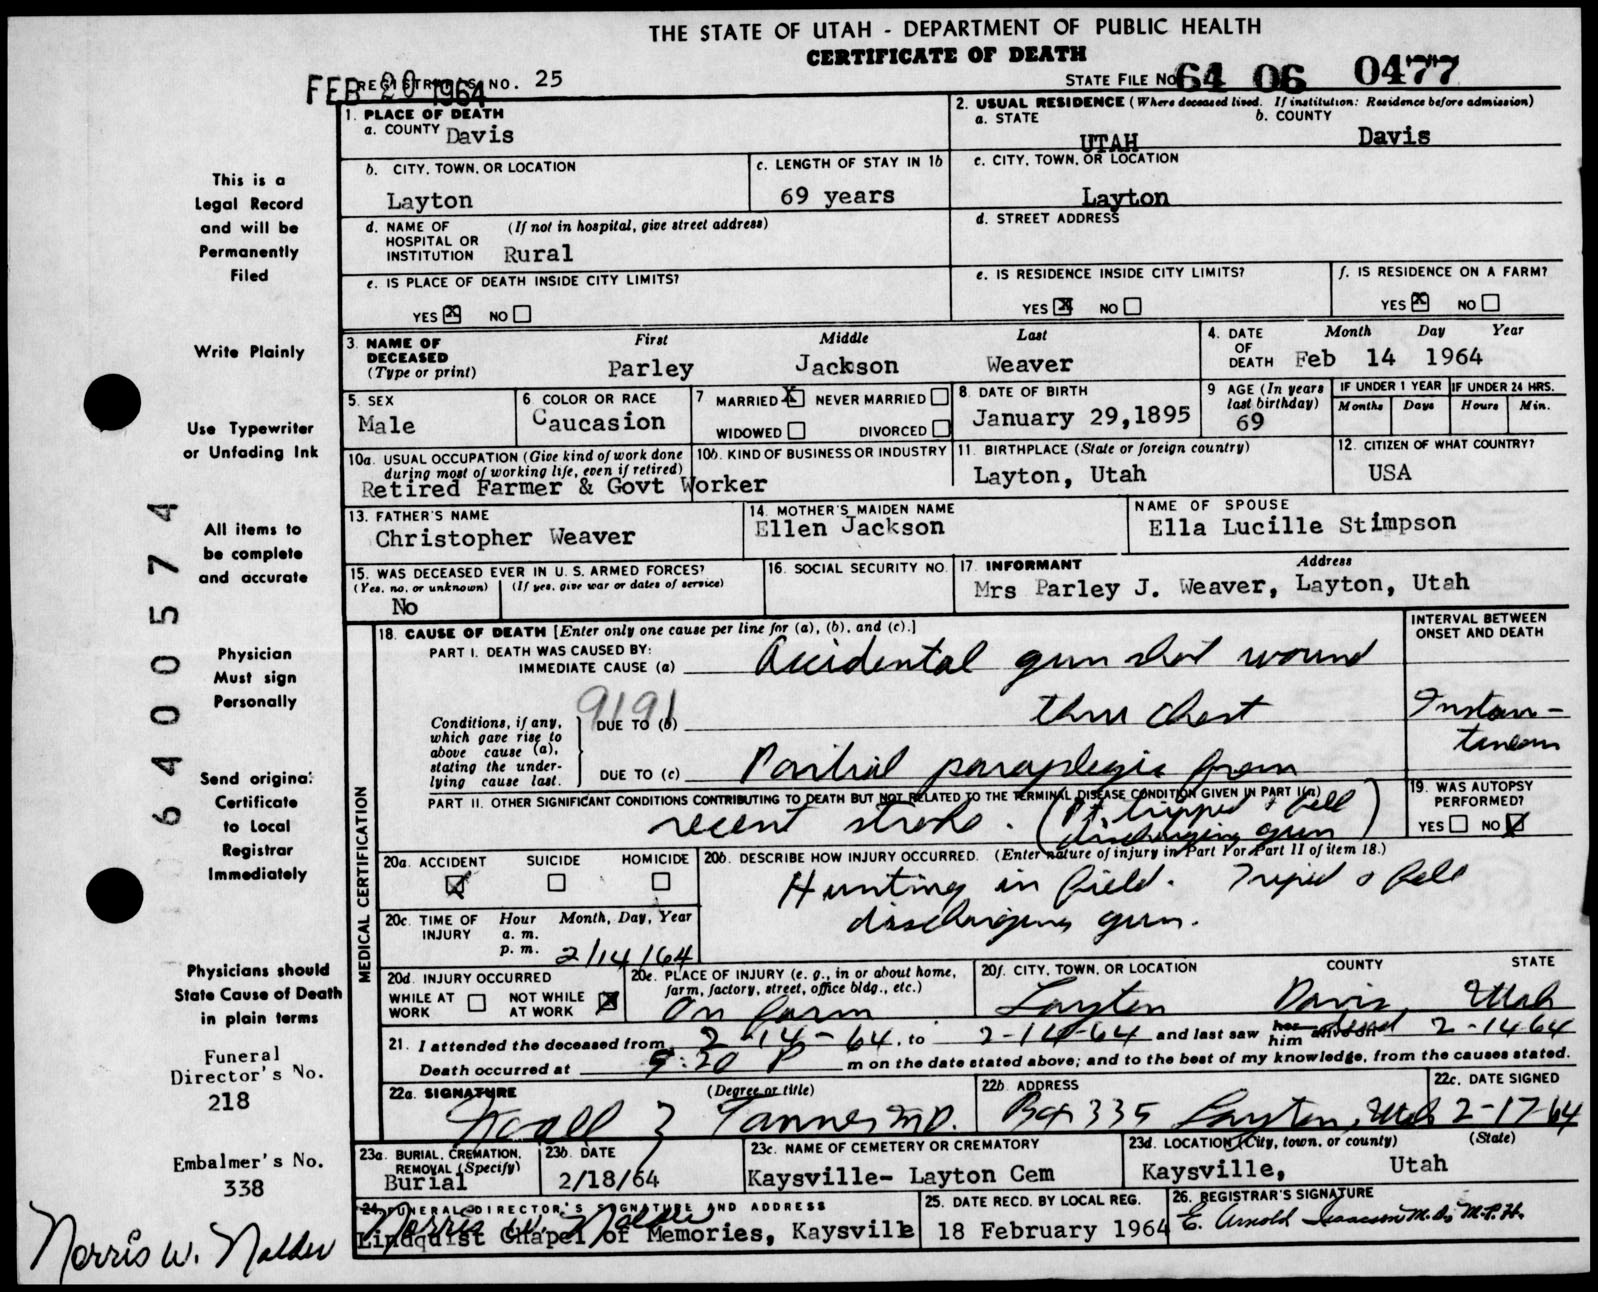 THE STATE OF UTAH - DEPARTMENT OF PUBLIC HEALTH
CERTIFICATE OF DEATH
FEB 20 1964
REGISTRAR'S NO. 25
STATE FILE NO. 64 06 0477
1. PLACE OF DEATH
a. COUNTY Davis
2. USUAL RESIDENCE (Where deceased lived. If institution: Residence before admission)
a. STATE UTAH
b. COUNTY Davis
b. CITY, TOWN, OR LOCATION
Layton
c. LENGTH OF STAY IN 1b
69 years
c. CITY, TOWN, OR LOCATION
Layton
d. NAME OF HOSPITAL OR INSTITUTION (If not in hospital, give street address)
Rural
d. STREET ADDRESS
e. IS PLACE OF DEATH INSIDE CITY LIMITS?
YES X NO
e. IS RESIDENCE INSIDE CITY LIMITS?
YES X NO
f. IS RESIDENCE ON A FARM?
YES X NO
3. NAME OF DECEASED (Type or print)
First Middle Last
Parley Jackson Weaver
4. DATE OF DEATH
Month Day Year
Feb 14 1964
5. SEX
Male
6. COLOR OR RACE
Caucasion
7 MARRIED X NEVER MARRIED
WIDOWED DIVORCED
8. DATE OF BIRTH
January 29,1895
9 AGE (In years last birthday)
69
IF UNDER 1 YEAR
Months Days
IF UNDER 24 HRS.
Hours Min.
10a. USUAL OCCUPATION (Give kind of work done during most of working life, even if retired)
10b. KIND OF BUSINESS OR INDUSTRY
Retired Farmer & Govt Worker
11. BIRTHPLACE (State or foreign country)
Layton, Utah
12. CITIZEN OF WHAT COUNTRY?
USA
13. FATHER'S NAME
Christopher Weaver
14. MOTHER'S MAIDEN NAME
Ellen Jackson
NAME OF SPOUSE
Ella Lucille Stimpson
15. WAS DECEASED EVER IN U. S. ARMED FORCES?
(Yes, no, or unknown) (If yes, give war or dates of service)
No
16. SOCIAL SECURITY NO.
17. INFORMANT Address
Mrs Parley J. Weaver, Layton, Utah
MEDICAL CERTIFICATION
18. CAUSE OF DEATH [Enter only one cause per line for (a), (b), and (c).]
INTERVAL BETWEEN ONSET AND DEATH
PART I. DEATH WAS CAUSED BY:
IMMEDIATE CAUSE (a) Accidental gun shot wound
9191
Conditions, if any, which gave rise to above cause (a), stating the underlying cause last.
DUE TO (b) thru chest
Instan-
taneous
DUE TO (c) Partial paraplegia from
PART II. OTHER SIGNIFICANT CONDITIONS CONTRIBUTING TO DEATH BUT NOT RELATED TO THE TERMINAL DISEASE CONDITION GIVEN IN PART I(a)
recent stroke. (Pt tripped & fell
discharging gun)
19. WAS AUTOPSY PERFORMED?
YES NO X
20a. ACCIDENT X SUICIDE HOMICIDE
20b. DESCRIBE HOW INJURY OCCURRED. (Enter nature of injury in Part I or Part II of item 18.)
Hunting in field. Triped & fell
discharging gun.
20c. TIME OF INJURY Hour Month, Day, Year
a. m.
p. m. 2/14/64
20d. INJURY OCCURRED
WHILE AT WORK NOT WHILE AT WORK X
20e. PLACE OF INJURY (e. g., in or about home, farm, factory, street, office bldg., etc.)
On farm
20f. CITY, TOWN, OR LOCATION COUNTY STATE
Layton Davis Utah
21. I attended the deceased from 2-14-64, to 2-14-64 and last saw her him 2-14-64
Death occurred at 5:20 P m on the date stated above; and to the best of my knowledge, from the causes stated.
22a. SIGNATURE (Degree or title)
Tanner M.D.
22b. ADDRESS
Box 335 Layton, Utah
22c. DATE SIGNED
2-17-64
23a. BURIAL, CREMATION, REMOVAL (Specify)
Burial
23b. DATE
2/18/64
23c. NAME OF CEMETERY OR CREMATORY
Kaysville- Layton Cem
23d. LOCATION (City, town, or county) (State)
Kaysville, Utah
24. FUNERAL DIRECTOR'S SIGNATURE AND ADDRESS
Norris W. Nalder
Lindquist Chapel of Memories, Kaysville
25. DATE RECD. BY LOCAL REG.
18 February 1964
26. REGISTRAR'S SIGNATURE
E. Arnold Isaacson M.D., M.P.H.
This is a
Legal Record
and will be
Permanently
Filed
Write Plainly
Use Typewriter
or Unfading Ink
All items to
be complete
and accurate
Physician
Must sign
Personally
Send original
Certificate
to Local
Registrar
Immediately
Physicians should
State Cause of Death
in plain terms
Funeral
Director's No.
218
Embalmer's No.
338
Norris W. Nalder
6400574